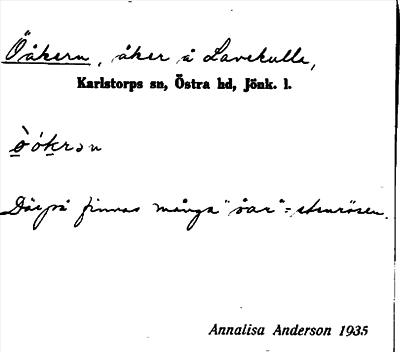 Öåkern, åker å Lavekulla,
Karlstorps sn, Östra hd, Jönk. l.
ò̲ók̲rən
Därpå finnas många "öar" = stenrösen.
Annalisa Anderson 1935